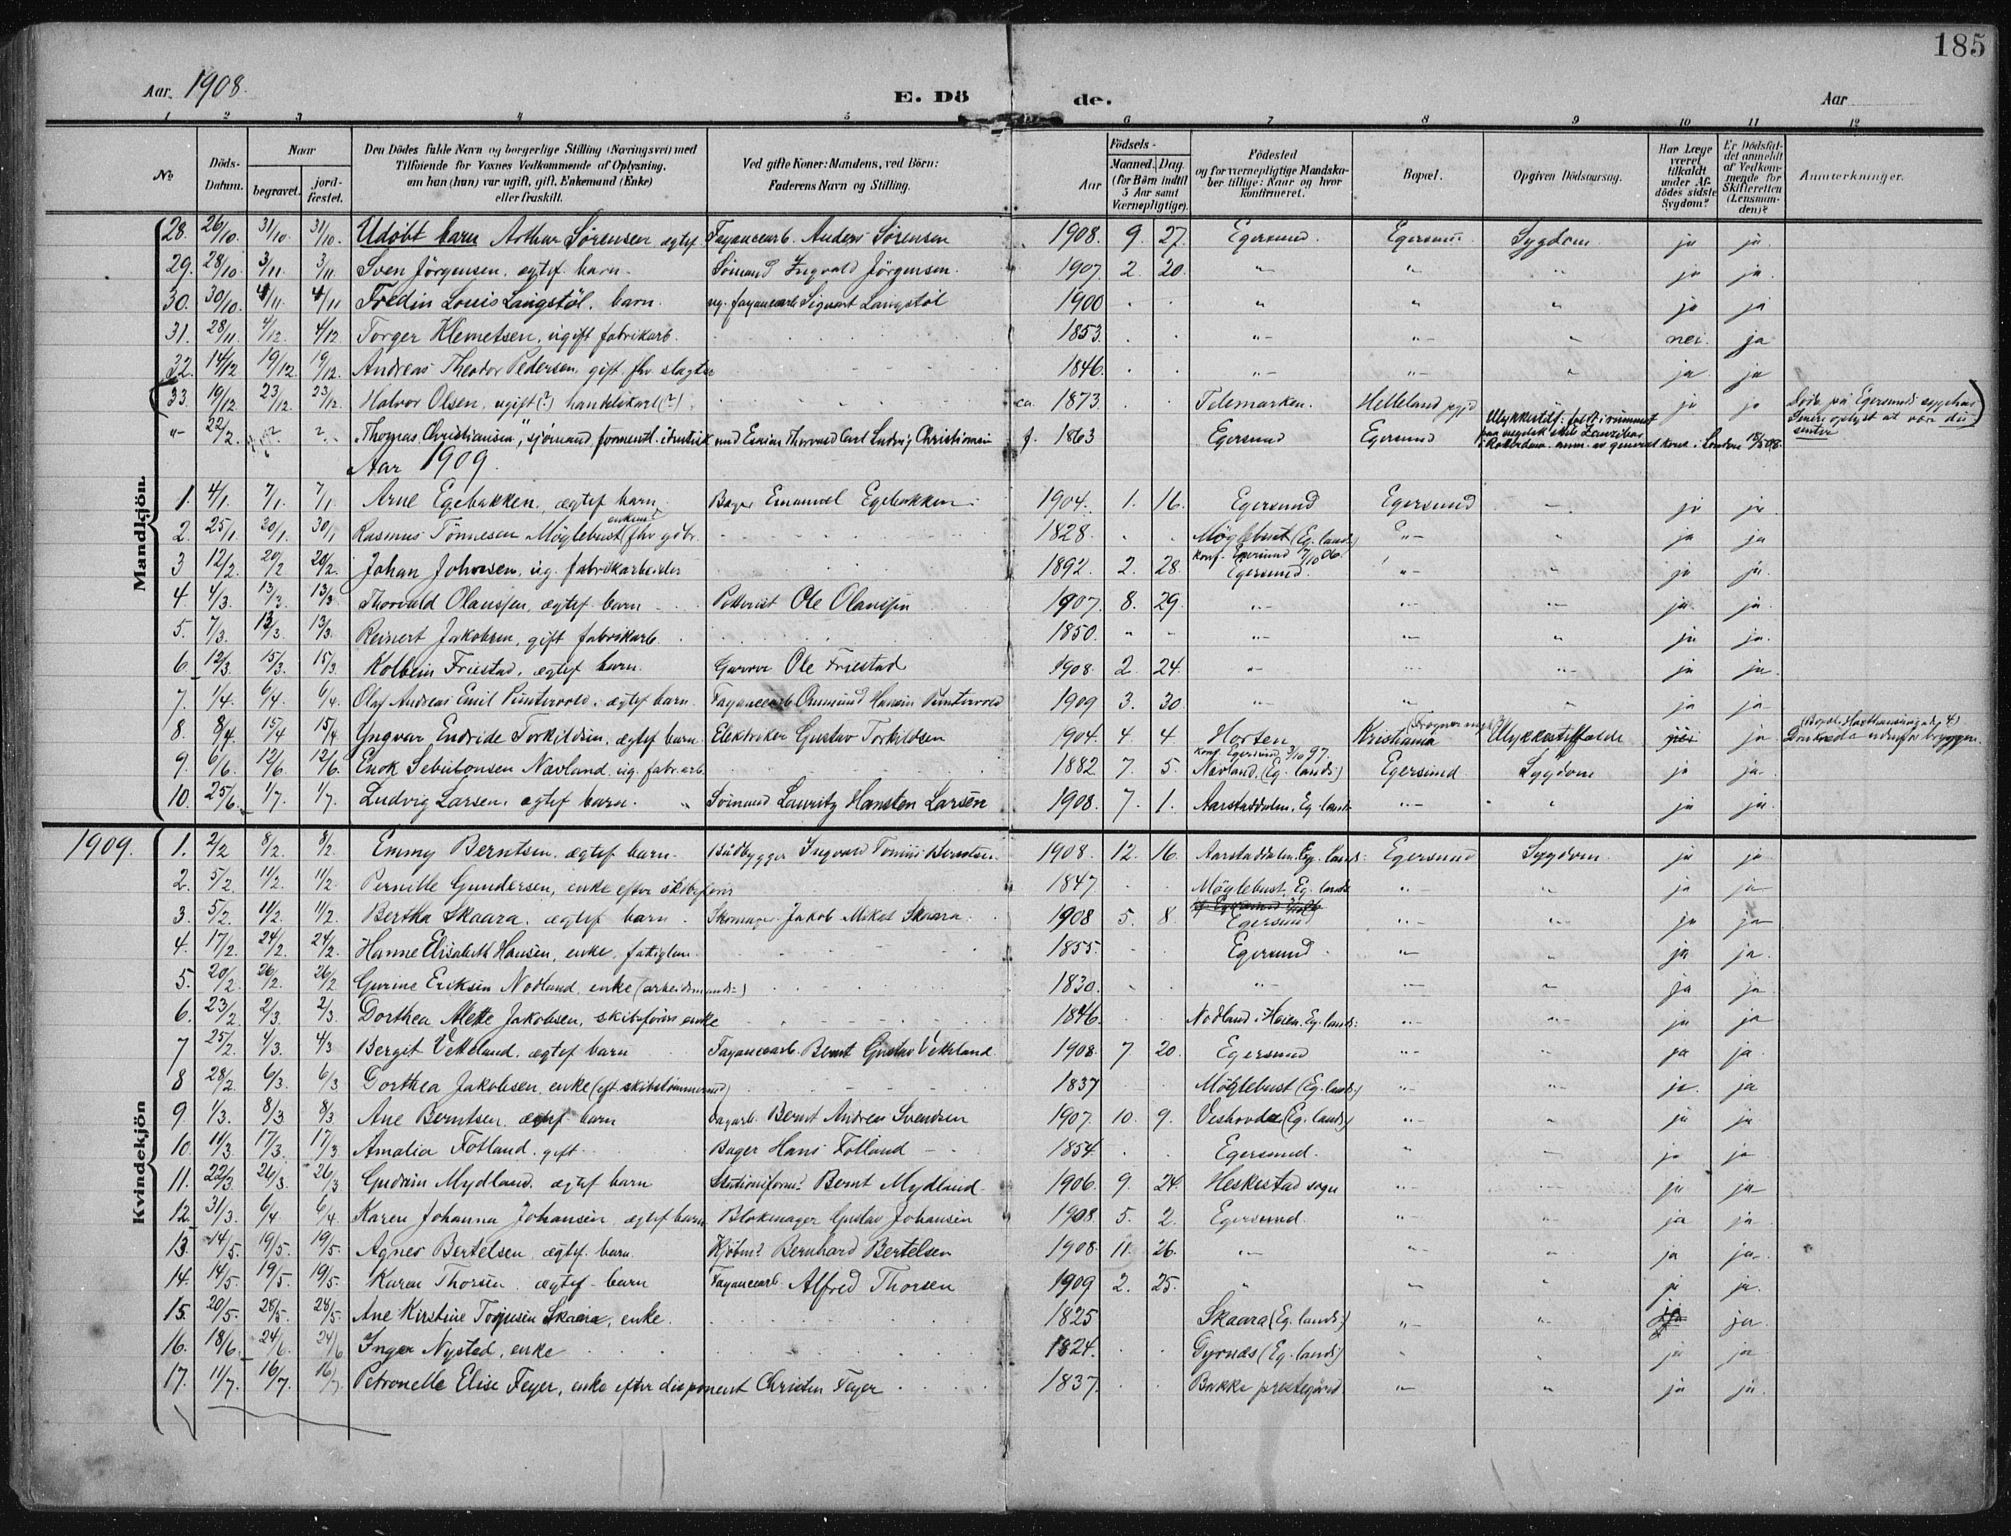 185
Aar. 1908.
E. Dö de.
Aar
1 2 3 4 5 6 7 8 9 10 11 12
No
Döds-Datum.
Naar
begravet.
jord-fæstet.
Den Dödes fulde Navn og borgerlige Stilling (Næringsvei) med Tilföiende for Voxnes Vedkommende af Oplysning, om han (hun) var ugift, gift, Enkemand (Enke) eller fraskilt.
Ved gifte Koner: Mandens, ved Börn: Faderens Navn og Stilling.
Födsels-
Aar
Maaned. Dag.
(for Börn indtil 5 Aar samt Værnepligtige).
Födested og for værnepligtige Mandskaber tillige: Naar og hvor konfirmeret.
Bopæl.
Opgiven Dödsaarsag.
Har Læge været tilkaldt under Afdödes sidste Sygdom?
Er Dödsfaldet anmeldt af Vedkommende for Skifteretten (Lensmanden)?
Anmærkninger.
Mandkjön.
28. 26/10. 31/10. 31/10. Udöbt barn Arthur Sørensen ægtef. Fayancearb. Anders Sørensen 1908. 9. 27. Egersund. Egersund Sygdom ja ja.
29. 28/10. 3/11. 3/11. Sven Jörgensen, ægtef. barn. Sömand Ingvald Jörgensen. 1907. 2. 20. " " " ja ja.
30. 30/10. 4/11. 4/11 Fredin Louis Langstöl, barn. ug. fayancearb Sigvart Langstöl 1900 " " " ja ja
31. 28/11. 4/12. 4/12 Torger Klemetsen, ugift fabrikarb. 1853. " " " nei. ja
32. 14/12 19/12. 19/12. Andreas Theodor Pedersen, gift. fhv slagter 1846. " " " ja ja
33. 19/12. 23/12. 23/12. Halvor Olsen, ugift(?) handelskarl(?). ca. 1873. Telemarken. Helleland pgjd " ja ja Döde på Egersunds sygehus
" 22/2. ? ? Thomas Christiansen, sjömand, formentl. f. 1863 Egersund Egersund
Aar 1909.
1. 4/1. 7/1. 7/1. Arne Egebakken, ægtef. barn. Bager Emanuel Egebakken. 1904. 1. 16. Egersund Egersund ja ja.
2. 25/1. 30/1. 30/1 Rasmus Tönnesen Möglebust (fhv gdbr. enkem. 1828. Möglebust (Eg. lands.) " ja ja
3 12/2. 20/2 20/2. Johan Johnsen, ug. fabrikarbeider 1892. 2. 28. konf. Egersund 7/10 06. Egersund. " " ja ja.
4. 4/3. 13/3 13/3. Thorvald Olaussen, ægtef. barn Potterist Ole Olaussen 1907. 8. 29. " " " ja. ja.
5. 7/3. 13/3 13/3. Reinert Jakobsen, gift fabrikarb. 1850. " " " " " ja ja.
6. 12/3. 15/3. 15/3 Kolbein Friestad, ægtef. barn. Garver Ole Friestad 1908. 2. 24. " " ja ja.
7. 1/4. 6/4. 6/4. Olaf Andreas Emil Puntervold, ægtef barn. Fayancearb Ommund Hansen Puntervold 1909 3. 30. " " " ja ja
8. 8/4. 15/4 15/4. Yngvar Endride Torkildsen, ægtef barn. Elektriker Gustav Torkildsen 1904. 4 4. Horten Kristiania Ulykkestilfælde nei ja
9. 6/6. 12/6 12/6. Enok Sebulonsen Nævland, ug. fabr. arb. 1882 7. 5. konf. Egersund 3/10 97. Nævland (Eg. lands.) Egersund. Sygdom ja ja
10. 25/6. 1/7. 1/7. Ludvig Larsen, ægtef barn. Sömand Lauritz Hansten Larsen 1908. 7. 1. Aarstaddalen, Eg. lands. " " ja ja.
1909.
Kvindekjön
1. 2/2 8/2. 8/2. Emmy Berntsen, ægtef. barn. Baadbygger Ingvald Berntsen 1908. 12. 16. Aarstaddalen, Eg. lands: Egersund Sygdom. ja ja.
2. 5/2. 11/2. 11/2. Pernille Gundersen, enke efter skibsfører 1847. Möglebust, Eg. lands. " " ja ja
3. 5/2. 11/2. 11/2. Bertha Skaara, ægtef barn. Skomager Jakob Mikal Skaara. 1908 5. 8. Egersund " " ja ja
4. 17/2. 24/2. 24/2. Hanne Elisabeth Hansen, enke, fattiglem. 1855. Egersund. " " ja ja.
5. 20/2. 26/2. 26/2 Gurine Eriksen Nodland, enke (arbeidsmands=) 1830. " " " ja ja.
6. 23/2. 2/3. 2/3. Dorthea Mette Jakobsen, skibsførers enke 1846. Nodland i Heien, Eg. lands: " " ja ja
7 25/2. 4/3. 4/3 Bergit Vetteland, ægtef barn Fayancearb. Bernt Gustav Vetteland. 1908. 7 20. Egersund " " ja ja.
8 28/2. 6/3. 6/3 Dorthea Jakobsen, enke (eft. skibstömmermand) 1837 Möglebust (Eg. lands:) " " ja ja
9. 1/3. 8/3 8/3. Ane Berntsen, ægtef barn fayarb. Bernt Andreas Svendsen 1907. 10. 9. (Eg. lands:) " " ja ja.
10. 11/3. 17/3. 17/3 Amalia Fotland, gift Bager Hans Fotland 1854 Egersund. " " ja ja
11. 22/3. 26/3 26/3 Gudrun Mydland, ægtef barn Stationsform. Bernt Mydland 1906. 9. 24. Heskestad sogn " " ja ja
12. 31/3. 6/4. 6/4. Karen Johanna Johansen, ægtef. barn. Blokmager Gustav Johansen 1908. 5. 2. Egersund. " " ja ja.
13. 14/5. 19/5. 19/5. Agnes Bertelsen, ægtef. barn. Kjöbm. Bernhard Bertelsen 1908. 11. 26. " " " ja ja.
14. 14/5. 19/5. 19/5. Karen Thorsen, ægtef. barn Fayancearb. Alfred Thorsen 1909 2. 25. " " " ja ja.
15. 20/5. 28/5. 28/5. Ane Kirstine Torjusen Skaara, enke. 1825 Skaara (Eg. lands:) " " ja ja.
16. 18/6. 24/6. 24/6 Inger Nysted, enke 1824. Gyrnæs (Eg. lands:) " " ja ja
17. 11/7. 16/7. 16/7 Petronelle Elise Feyer, enke efter disponent Christen Feyer 1837. Bakke præstegjæld " " ja ja.